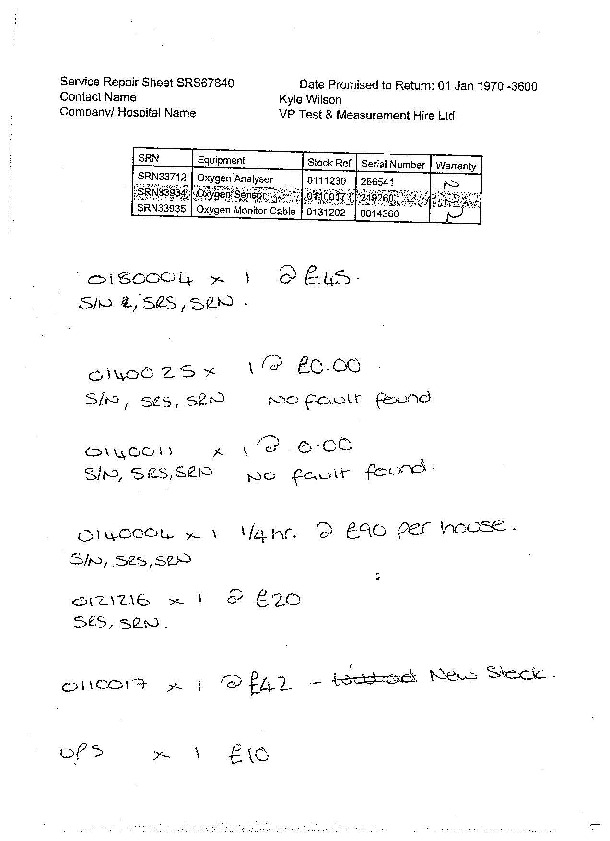 Service Repair Sheet SRS67840
Date Promised to Return: 01 Jan 1970 -3600
Contact Name
Kyle Wilson
Company/ Hospital Name
VP Test & Measurement Hire Ltd
SRN Equipment Stock Ref Serial Number Warranty
SRN33712 Oxygen Analyser 0111230 256541 N
SRN33934 Oxygen Sensor
SRN33935 Oxygen Monitor Cable 0131202 0014360 N
0180004 x 1 @ £45.
S/N, SRS, SRN.
0140025 x 1 @ £0.00
S/N, SRS, SRN No fault found
0140011 x 1 @ 0.00
S/N, SRS, SRN No fault found.
0140004 x 1 1/4 hr. @ £90 per house.
S/N, SRS, SRN
0121216 x 1 @ £20
SRS, SRN.
0110017 x 1 @ £42 - New Stock.
UPS x 1 £10